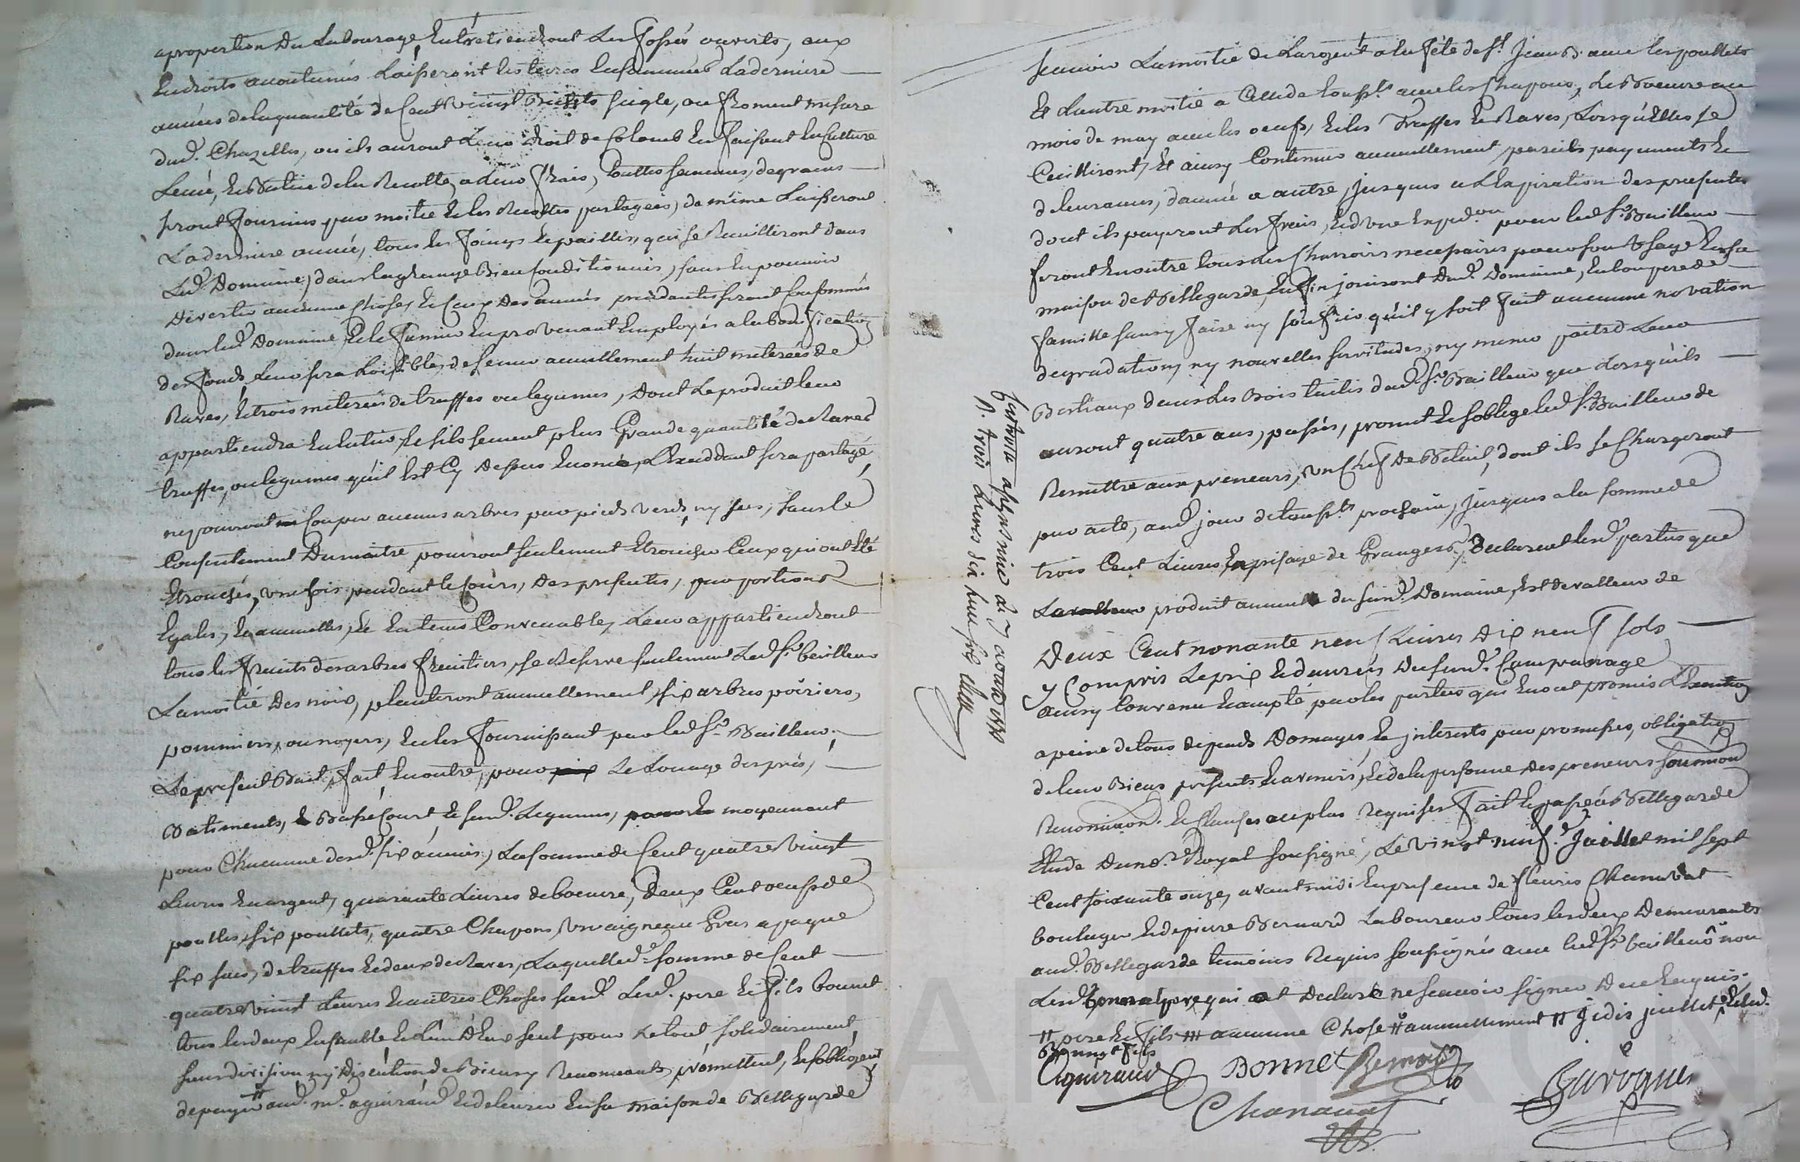 aproportion du Labourage, Entretiendront Les fossés ouverts, aux
Endroits acoutumés Laisseront les terres Ensemencées La derniere
année de la quantité de Cent vingt Bichets seigle, ou froment mesure
dud. Chazelles, ou ils auront Leur droit de Colomb En faisant la Culture
Levée, Et Battue de la Recolte, a leurs frais, touttes semences, de grains
seront fournies par moitié Et les Recoltes partagées, de même Laisseront
La derniere année, tous les foings Et pailles, qui se Recuilliront dans
Led. Domaine, dans la grange Bien Conditionnés, sans En pouvoir
Divertir aucune Chose, Et Ceux Des années précédantes seront Consommés
dans led. Domaine Et le fumier En provenant Employés a la bonification
des fonds, Leur sera Loisible, de semer annuellement huit meterées de
Raves, Et trois meterées de truffes ou legumes, Dont Le produit leur
appartiendra En Entier, Et s'ils sement plus Grande quantité de Raves
truffes, ou legumes qu'il Est Cy Dessus Enoncé, L'Exceddant sera partagé
ne pouront Couper aucuns arbres par pieds verds, ny secs, sans le
Consentement Du maitre, pourront seulement Etroncher Ceux qui ont Eté
Etronchés, une fois pendant le Cours, Des presentes, par portions
Egales, Et annuelles, Et En tems Convenable, Leur appartiendront
tous les fruits des arbres fruitiers, se Reserve seulement Led. Sr. bailleur
La moitié Des noix, planteront annuellement, six arbres poiriers,
pommiers, ou noyers, En les fournissant par led. Sr. Bailleur.
Le present Bail, fait En outre, pour Le Louage des prés,
Batiments, Basse Court, Et susd. Legumes, moyennant
pour Chacunne desd. six années, La somme de Cent quatre vingt
Livres En argent, quarante Livres de beurre, Deux Cent oeufs de
poulles, six poullets, quatre Chapons, un aigneau Gras a paque
six sacs, de truffes Et deux de Raves, Laquelle d. somme de Cent
quatre vingt Livres Et autres Choses susd. Lesd. pere Et fils bonnet
tous les deux Ensemble Et L'un D'Eux seul pour Le tout, solidairement
sans division ny Discution de Biens, y Renonceants, promettent, Et s'obligent
de payer aud. me. aguiraud, Et delivrer En sa maison de Bellegarde
scavoir La moitié de L'argent a la fete de St. Jean B. avec les poullets
Et L'autre moitié a Celle de toussts. avec les Chapons, Le Beurre au
mois de may avec les oeufs, Et les Truffes Et Raves, Lorsqu'Elles se
Cuilliront, Et ainsy Continuer annuellement, pareils payements Et
delivrances, d'année a autre, Jusques a L'Expiration des presentes
dont ils payeront Les frais, Et d'une Expedon. pour led. Sr. Bailleur
feront En outre tous les Charrois necessaires pour son Usage En sa
maison de Bellegarde, Enfin jouiront Dud. Domaine, En bon pere de
famille sans y faire ny souffrir qu'il y soit fait aucunne novation
degradation, ny nouvelles servitudes, ny mener paitre Leurs
Bestiaux dans Les Bois taillis dud. Sr. Bailleur que Lorsqu'ils
auront quatre ans, passés, promet Et s'oblige led. Sr. Bailleur de
Remettre aux preneurs, un Chef De Betail, dont ils se Chargeront
par acte, aud. jour de toussts. prochain, jusques a la somme de
trois Cent Livres, En prisage de Grangers, Declarent lesd. parties que
Le produit annuel du susd. Domaine, Est de valleur de
Deux Cent nonante neuf Livres Dix neuf sols
y Compris Le prix Et danrées Du susd. Campannage
ainsy Convenu Et accepté par les parties qui En ont promis L'Execution
a peine de tous depends Domages Et interests par promesses, obligation
de leurs Biens presents Et avenirs, Et de la personne Des preneurs soumission
Renonciaon. Et Clauses au plus Requises fait Et passé a Bellegarde
Etude Dun de. Royal soussigné, Le vingt neuf. Juillet mil sept
Cent soixante onze, avant midi En presence de fleuris Chanavat
boulanger Et de pierre Bernard Laboureur tous les deux Demeurants
aud. Bellegarde temoins Requis soussignés avec lied. Sr. bailleur non
Lesd. bonnet pere qui ont Declaré ne scavoir signer De ce Requis.
# pere Et fils # aucunne Chose # annuellement # jedis juillet, Et led.
Bonnet fils
Aguiraud Bonnet Bernard
Chanavat
Baroques
Controlé a le 7 aoust 1771
R. trois Livres dix huit sols